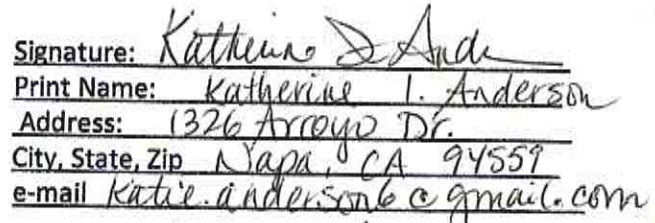 Signature: Katherine I And
Print Name: Katherine I. Anderson
Address: 1326 Arroyo Dr.
City, State, Zip Napa, CA 94559
e-mail Katie.anderson6@gmail.com